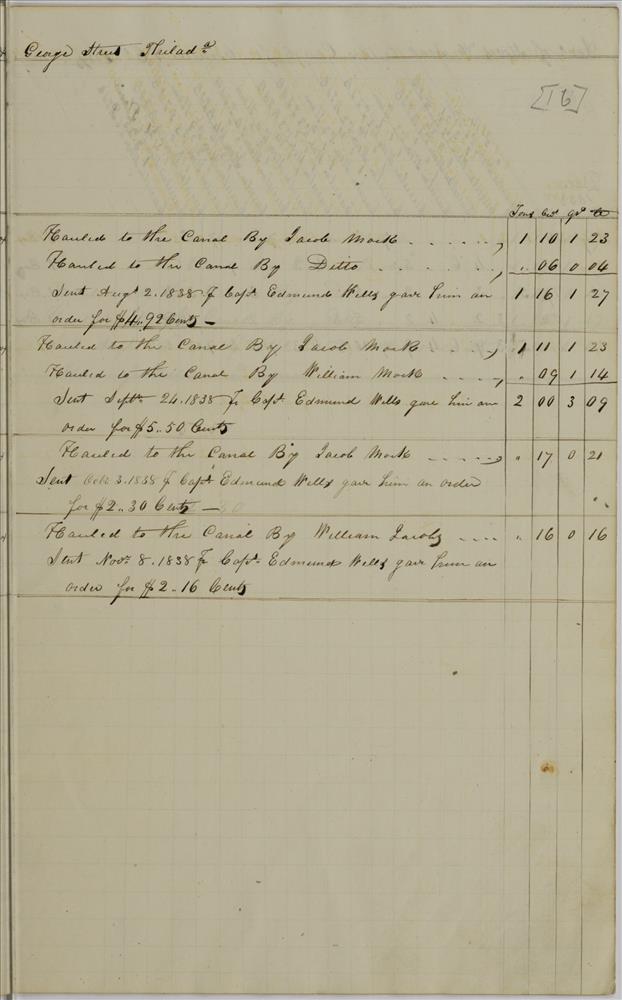 George Street Philad.a
[16]
Tons Cwt qr lb
Hauled to the Canal By Jacob Mock . . . . . . , 1 10 1 23
Hauled to the Canal By Ditto . . . . . . . , " 06 0 04
Sent Augt 2. 1838 Capt. Edmund Wells gave him an 1 16 1 27
order for $4..92 Cents —
Hauled to the Canal By Jacob Mock . . . . , 1 11 1 23
Hauled to the Canal By William Mock . . . . , " 09 1 14
Sent Septr 24. 1838 Capt. Edmund Wells gave him an 2 00 3 09
order for $5..50 Cents
Hauled to the Canal By Jacob Mock . . . . . , " 17 0 21
Sent Octr 3. 1838 Capt Edmund Wells gave him an order
for $2..30 Cents —
Hauled to the Canal By William Jacobs . . . . " 16 0 16
Sent Novr 8. 1838 Capt. Edmund Wells gave him an
order for $2..16 Cents